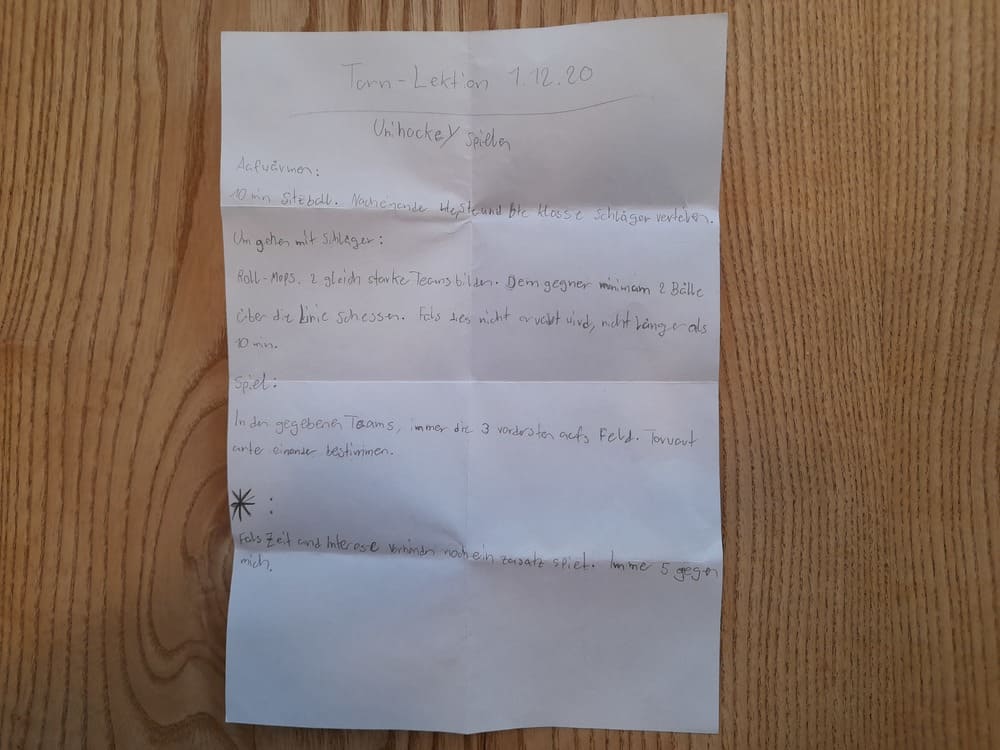 Turn-Lektion 1.12.20
Unihockey spielen
Aufwärmen:
10 min Sitzball. Nacheinande und 6te klasse Schläger verteilen.
Umgehen mit Schläger:
Roll-Mops, 2 gleich starke Teams bilden. Dem gegner minimum 2 Bälle
über die Linie schessen. Fals dies nicht wird, nicht länger als
10 min.
Spiel:
In den gegebenen Teams, immer die 3 vordersten aufs Feld. Torwart
unter einander bestimmen.
* :
Fals Zeit und Interese vorhanden noch ein zusatz spiel. Imme 5 gegen
mich.